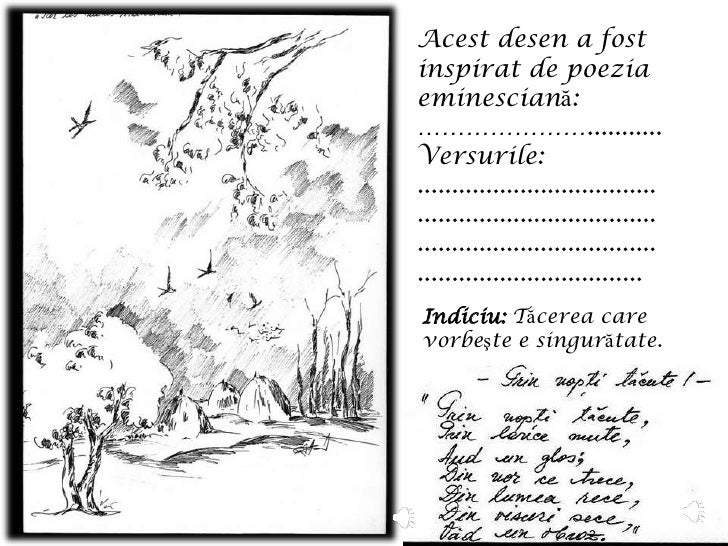 Acest desen a fost
inspirat de poezia
eminesciană:
…………………...........
Versurile:
...................................
...................................
...................................
.................................
Indiciu: Tăcerea care
vorbeşte e singurătate.
- Prin nopţi tăcute! -
"Prin nopţi tăcute,
Prin lunce mute,
Aud un glas;
Din nor ce trece,
Din lumea rece,
Din visuri sece,
Văd un obraz."